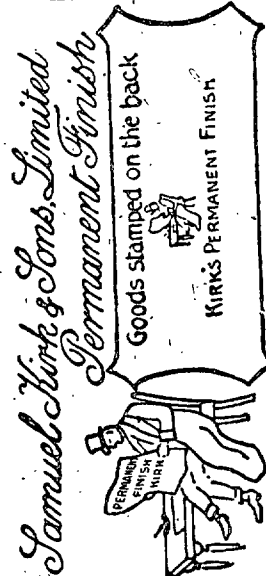 Samuel Kirk & Sons, Limited
Permanent Finish
Goods stamped on the back
KIRK'S PERMANENT FINISH
PERMANENT
FINISH
KIRK